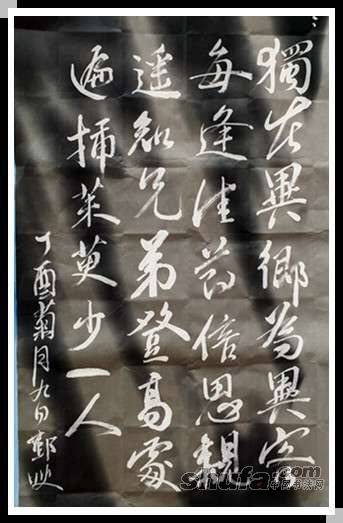 獨在異鄉為異客
每逢佳节倍思親
遥知兄弟登高處
遍插茱萸少一人
丁酉菊月九日鄭
shufa